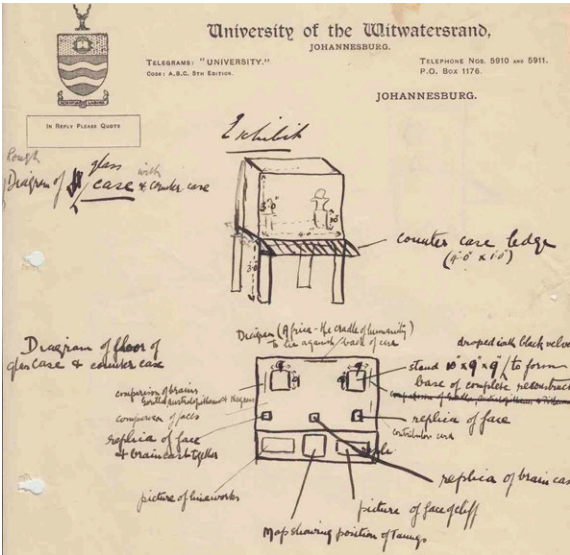 University of the Witwatersrand,
JOHANNESBURG.
TELEGRAMS: "UNIVERSITY."
CODE: A.B.C. 5TH EDITION.
TELEPHONE NOS. 5910 AND 5911.
P.O. BOX 1176.
JOHANNESBURG.
IN REPLY PLEASE QUOTE
Exhibit
Rough
Diagram of glass case with & counter case
counter case ledge
(4'·0" x 1'·0")
Diagram of floor of
glass case & counter case
Diagram (Africa - the cradle of humanity)
to lie against back of case
draped with black velve
stand 10" x 9" x 9" / to form
base of complete reconstruct
comparison of brains
comparison of faces
replica of face
& braincast together
replica of face
replica of brain cas
picture of limeworks
picture of face of cliff
Map showing position of Taungs